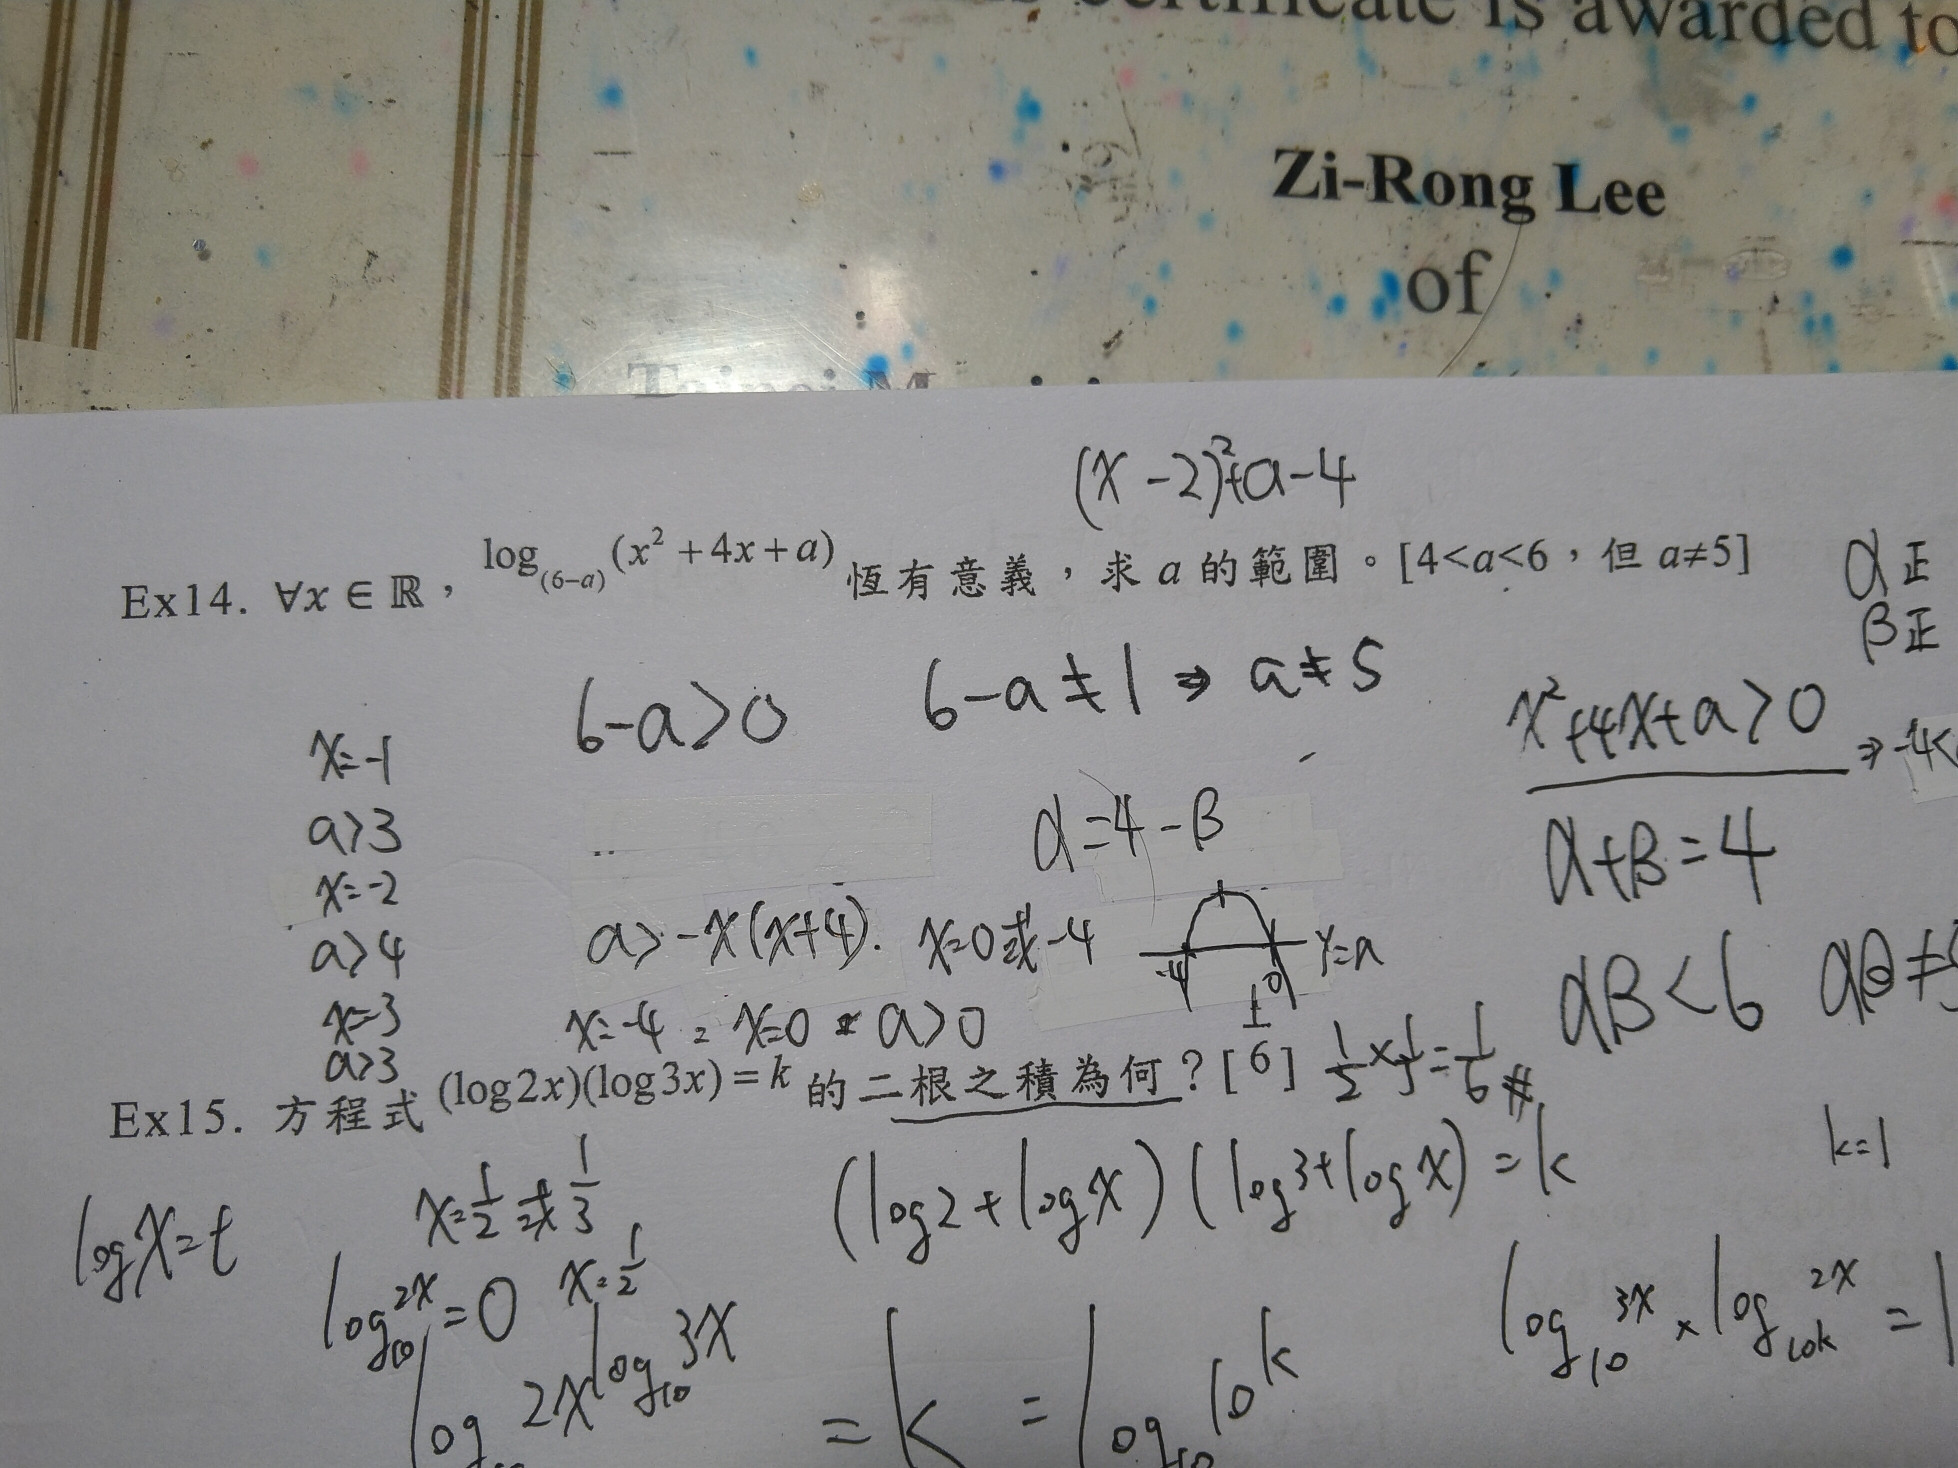 certificate is awarded to
Zi-Rong Lee
of
(x-2)²+a-4
Ex14. ∀x∈ℝ, log₍₆₋ₐ₎(x²+4x+a) 恆有意義,求 a 的範圍。[4<a<6,但 a≠5]
α正
β正
6-a>0
6-a≠1 ⇒ a≠5
x²+4x+a>0 ⇒ -4<
x=-1
a>3
x=-2
a>4
x=-3
a>3
α=4-β
α+β=4
a>-x(x+4). x=0或-4
-4 0 y=a
αβ<6 αβ≠5
x=-4, x=0 a>0
Ex15. 方程式 (log2x)(log3x)=k 的二根之積為何?[1/6] 1/2×1/3=1/6 #
k=1
logx=t
x=1/2或1/3
(log2+logx)(log3+logx)=k
log₁₀2x=0 x=1/2
log₁₀3x × log₁₀k 2x = 1
log 2x^log₁₀3x = k = log₁₀10^k